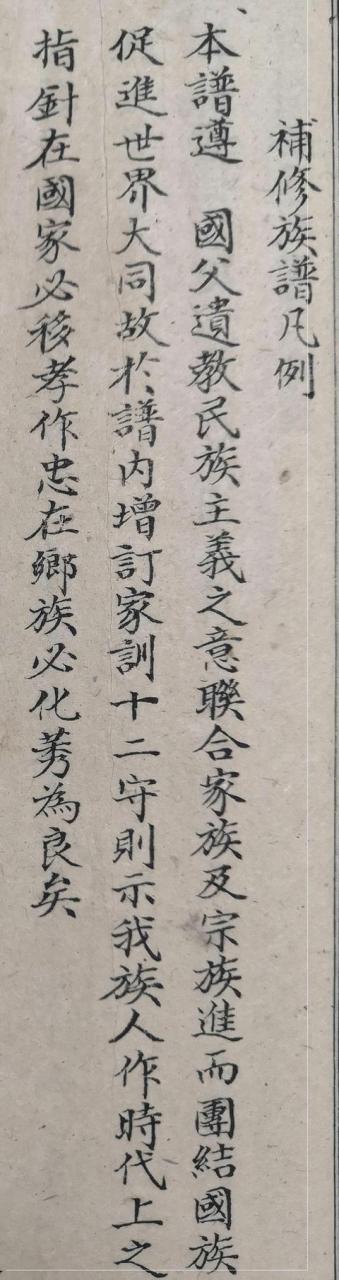 補修族譜凡例
本譜遵　國父遺教民族主義之意聯合家族及宗族進而團結國族
促進世界大同故於譜內增訂家訓十二守則示我族人作時代上之
指針在國家必移孝作忠在鄉族必化莠為良矣